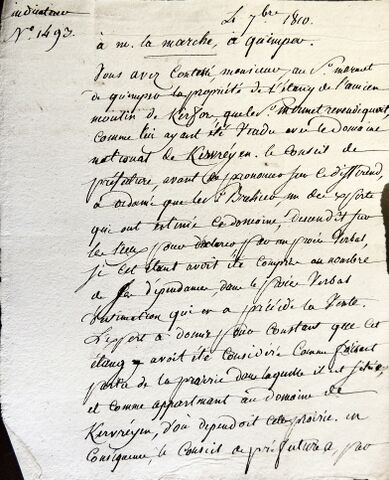 indicateur
N.° 1493.
Le 7bre 1810.
à m. la marche, à quimper.
Vous avez contesté monsieur au S.r mermet
de quimper la propriété de l'étang de l'ancien
moulin de que le S.r mermet revendiquait,
comme lui ayant été vendu avec le domaine
national de Kervréyen. le Conseil de
préfecture, avant de prononcer sur ce différend,
a ordonné que le S.r un des experts
qui ont estimé ce domaine, descendit sur
le lieux pour par un procès verbal,
si cet étang avoit été compris au nombre
de ses dépendances, dans le procès verbal
d'estimation qui en a précédé la Vente.
L'expert a donné pour constant que cet
étang avoit été considéré comme faisant
partie de la prairie dans laquelle il est situé,
et comme appartenant au domaine de
Kervréyen, d'on dependoit cette prairie. en
Conséquence, le Conseil de préfecture a, par